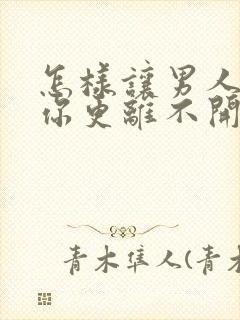 怎樣讓男人
你更離不開
青木隼人(青木